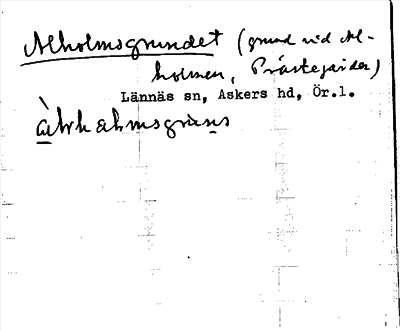 Alholmsgrundet (grund vid Al-
holmen, Prästgården)
Lännäs sn, Askers hd, Ör.l.